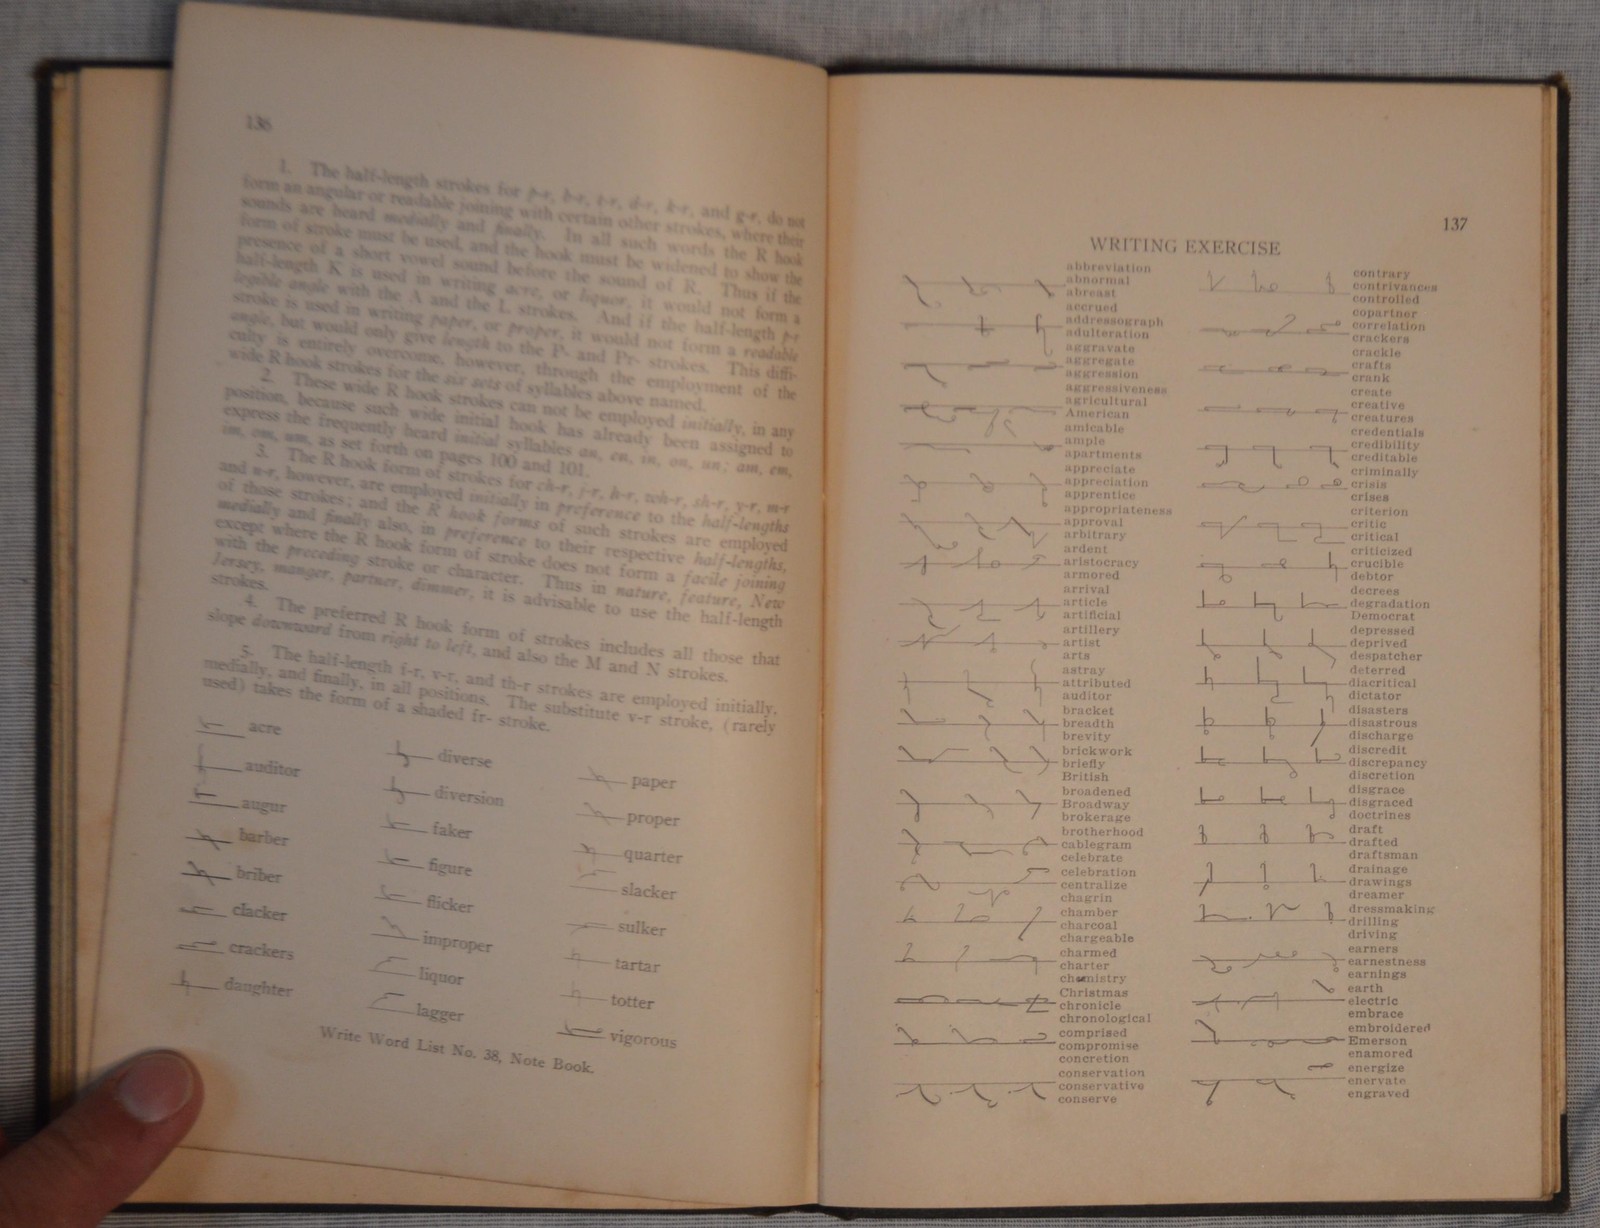 136
1. The half-length strokes for p-r, b-r, t-r, d-r, k-r, and g-r, do not
form an angular or readable joining with certain other strokes, where their
sounds are heard medially and finally. In all such words the R hook
form of stroke must be used, and the hook must be widened to show the
presence of a short vowel sound before the sound of R. Thus if the
half-length K is used in writing acre, or liquor, it would not form a
legible angle with the A and the L strokes. And if the half-length p-r
stroke is used in writing paper, or proper, it would not form a readable
angle, but would only give length to the P- and Pr- strokes. This diffi-
culty is entirely overcome, however, through the employment of the
wide R hook strokes for the six sets of syllables above named.
2. These wide R hook strokes can not be employed initially, in any
position, because such wide initial hook has already been assigned to
express the frequently heard initial syllables an, en, in, on, un; am, em,
im, om, um, as set forth on pages 100 and 101.
3. The R hook form of strokes for ch-r, j-r, h-r, wh-r, sh-r, y-r, m-r
and n-r, however, are employed initially in preference to the half-lengths
of those strokes; and the R hook forms of such strokes are employed
medially and finally also, in preference to their respective half-lengths,
except where the R hook form of stroke does not form a facile joining
with the preceding stroke or character. Thus in nature, feature, New
Jersey, manger, partner, dimmer, it is advisable to use the half-length
strokes.
4. The preferred R hook form of strokes includes all those that
slope downward from right to left, and also the M and N strokes.
5. The half-length f-r, v-r, and th-r strokes are employed initially,
medially, and finally, in all positions. The substitute v-r stroke, (rarely
used) takes the form of a shaded fr- stroke.
acre
auditor
augur
barber
briber
clacker
crackers
daughter
diverse
diversion
faker
figure
flicker
improper
liquor
lagger
paper
proper
quarter
slacker
sulker
tartar
totter
vigorous
Write Word List No. 38, Note Book.
137
WRITING EXERCISE
abbreviation
abnormal
abreast
accrued
addressograph
adulteration
aggravate
aggregate
aggression
aggressiveness
agricultural
American
amicable
ample
apartments
appreciate
appreciation
apprentice
appropriateness
approval
arbitrary
ardent
aristocracy
armored
arrival
article
artificial
artillery
artist
arts
astray
attributed
auditor
bracket
breadth
brevity
brickwork
briefly
British
broadened
Broadway
brokerage
brotherhood
cablegram
celebrate
celebration
centralize
chagrin
chamber
charcoal
chargeable
charmed
charter
chemistry
Christmas
chronicle
chronological
comprised
compromise
concretion
conservation
conservative
conserve
contrary
contrivances
controlled
copartner
correlation
crackers
crackle
crafts
crank
create
creative
creatures
credentials
credibility
creditable
criminally
crisis
crises
criterion
critic
critical
criticized
crucible
debtor
decrees
degradation
Democrat
depressed
deprived
despatcher
deterred
diacritical
dictator
disasters
disastrous
discharge
discredit
discrepancy
discretion
disgrace
disgraced
doctrines
draft
drafted
draftsman
drainage
drawings
dreamer
dressmaking
drilling
driving
earners
earnestness
earnings
earth
electric
embrace
embroidered
Emerson
enamored
energize
enervate
engraved